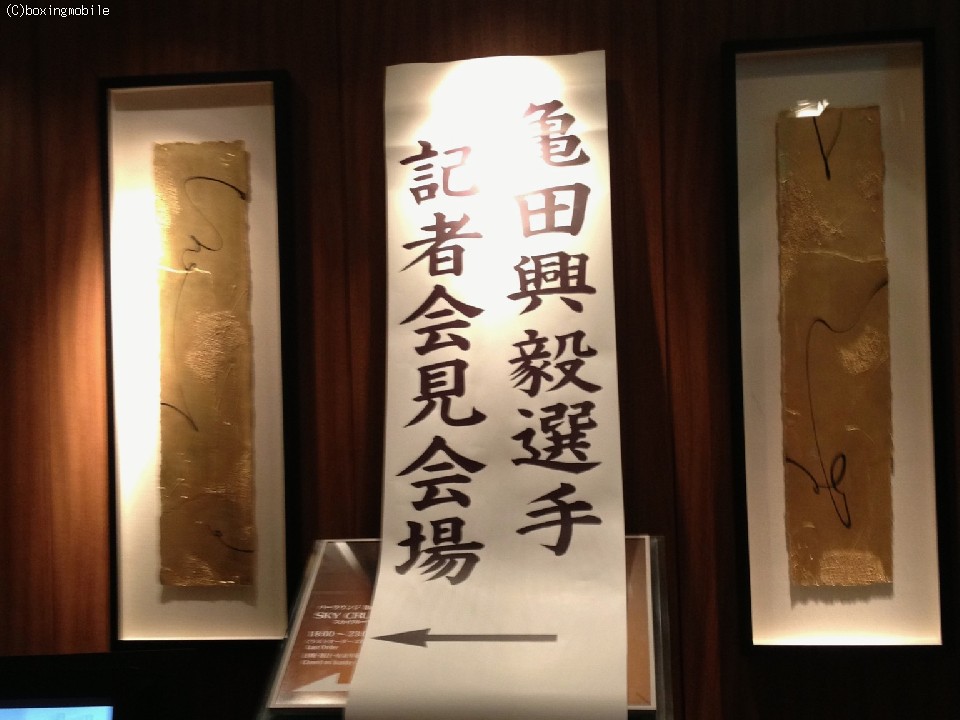 (C)boxingmobile
亀田興毅選手
記者会見会場
SKY CRU